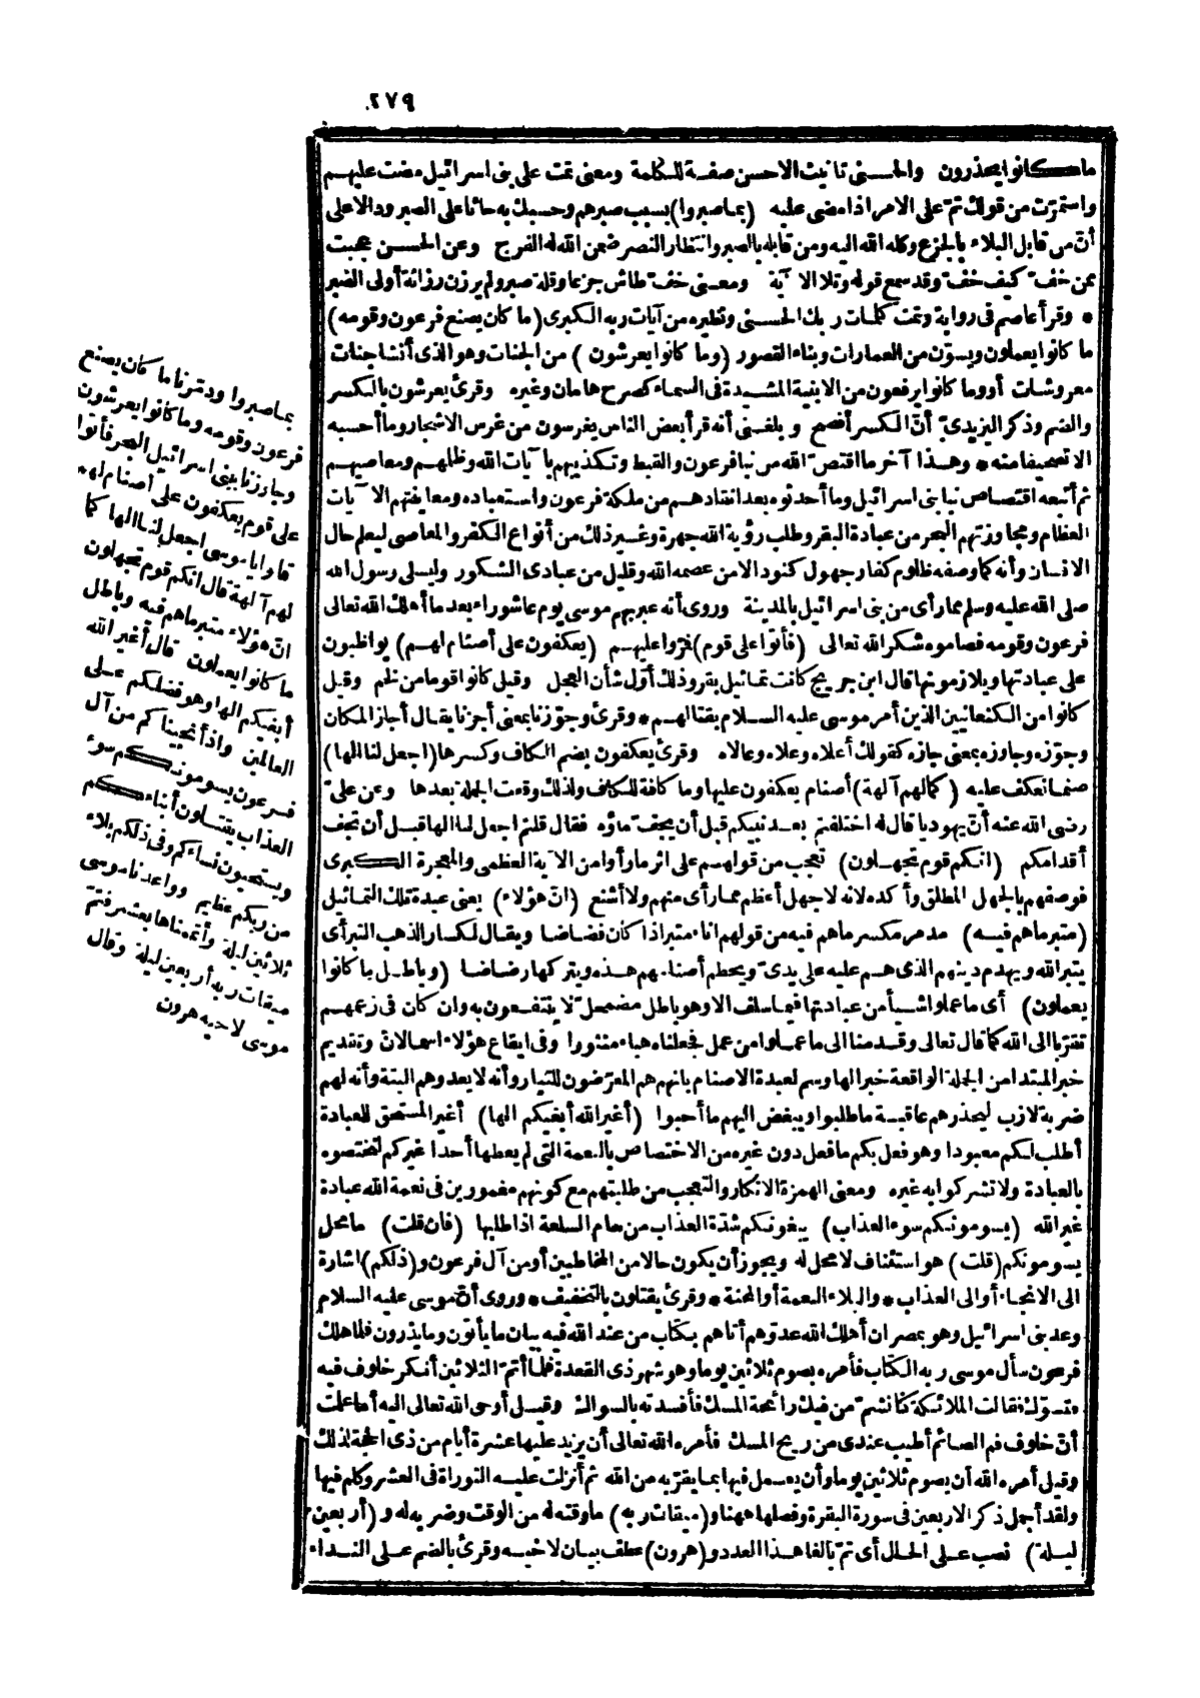 ٢٧٩
ما كانوا يحذرون والحسنى تانيث الاحسن صفة للكلمة ومعنى تمت على بنى اسرائيل مضت عليهم
واستمرّت من قولك تمّ على الامر اذا مضى عليه (بما صبروا) بسبب صبرهم وحسبك به حاثا على الصبر ودالا على
أنّ من قابل البلاء بالجزع وكله الله اليه ومن قابله بالصبر وانتظار النصر ضمن الله له الفرج وعن الحسن عجبت
ممن خفّ كيف خفّ وقد سمع قوله وتلا الآية ومعنى خفّ طاش جزعا وقلة صبر ولم يرزن رزانة أولى الصبر
* وقرأ عاصم فى رواية وتمت كلمات ربك الحسنى ونظيره من آيات ربه الكبرى (ما كان يصنع فرعون وقومه)
ما كانوا يعملون ويسوّن من العمارات وبناء القصور (وما كانوا يعرشون) من الجنات وهو الذى أنشأ جنات
معروشات أو وما كانوا يرفعون من الابنية المشيدة فى السماء كصرح هامان وغيره وقرئ يعرشون بالكسر
والضم وذكر اليزيدىّ أنّ الكسر أفصح وبلغنى أنه قرأ بعض الناس يغرسون من غرس الاشجار وما أحسبه
الا تصحيفا منه * وهذا آخر ما اقتصّ الله من نبا فرعون والقبط وتكذيبهم بآيات الله وظلمهم ومعاصيهم
ثم أتبعه اقتصاص نبا بنى اسرائيل وما أحدثوه بعد انقاذهم من ملكة فرعون واستعباده ومعاينتهم الآيات
العظام ومجاوزتهم البحر من عبادة البقر وطلب رؤية الله جهرة وغير ذلك من أنواع الكفر والمعاصى ليعلم حال
الانسان وأنه كما وصفه ظلوم كفار جهول كنود الا من عصمه الله وقليل من عبادى الشكور وليسلى رسول الله
صلى الله عليه وسلم مما رأى من بنى اسرائيل بالمدينة وروى أنه عبر بهم موسى يوم عاشوراء بعد ما أهلك الله تعالى
فرعون وقومه فصاموه شكر الله تعالى (فأتوا على قوم) فمرّوا عليهم (يعكفون على أصنام لهم) يواظبون
على عبادتها ويلازمونها قال ابن جريج كانت تماثيل بقر وذلك أوّل شأن العجل وقيل كانوا قوما من لخم وقيل
كانوا من الكنعانيين الذين أمر موسى عليه السلام بقتالهم * وقرئ وجوّزنا بمعنى أجزنا يقال أجاز المكان
وجوّزه وجاوزه بمعنى جازه كقولك أعلاه وعلاه وعالاه وقرئ يعكفون بضم الكاف وكسرها (اجعل لنا الها)
صنما نعكف عليه (كما لهم آلهة) أصنام يعكفون عليها وما كافة للكاف ولذلك وقعت الجملة بعدها وعن علىّ
رضى الله عنه أنّ يهوديا قال له اختلفتم بعد نبيكم قبل أن يجف ماؤه فقال قلتم اجعل لنا الها قبل أن تجف
أقدامكم (انكم قوم تجهلون) تعجب من قولهم على اثر ما رأوا من الآية العظمى والمعجزة الكبرى
فوصفهم بالجهل المطلق وأكده لانه لا جهل أعظم مما رأى منهم ولا أشنع (انّ هؤلاء) يعنى عبدة تلك التماثيل
(متبر ما هم فيه) مدمر مكسر ما هم فيه من قولهم اناء متبر اذا كان فضاضا ويقال لكسار الذهب التبر أى
يتبر الله ويهدم دينهم الذى هم عليه على يدىّ ويحطم أصنامهم هذه ويتركها رضاضا (وباطل ما كانوا
يعملون) أى ما عملوا شيأ من عبادتها فيما سلف الا وهو باطل مضمحلّ لا ينتفعون به وان كان فى زعمهم
تقرّبا الى الله كما قال تعالى وقدمنا الى ما عملوا من عمل فجعلناه هباء منثورا وفى ايقاع هؤلاء اسما لانّ وتقديم
خبر المبتدا من الجملة الواقعة خبرا لها وسم لعبدة الاصنام بانهم هم المعرّضون للتبار وأنه لا يعدوهم البتة وأنه لهم
ضربة لازب ليحذرهم عاقبة ما طلبوا ويبغض اليهم ما أحبوا (أغير الله أبغيكم الها) أغير المستحق للعبادة
أطلب لكم معبودا وهو فعل بكم ما فعل دون غيره من الاختصاص بالنعمة التى لم يعطها أحدا غيركم لتختصوه
بالعبادة ولا تشركوا به غيره ومعنى الهمزة الانكار والتعجب من طلبتهم مع كونهم مغمورين فى نعمة الله عبادة
غير الله (يسومونكم سوء العذاب) يبغونكم شدّة العذاب من سام السلعة اذا طلبها (فان قلت) ما محل
يسومونكم (قلت) هو استئناف لا محل له ويجوز أن يكون حالا من المخاطبين أو من آل فرعون و (ذلكم) اشارة
الى الانجاء أو الى العذاب * والبلاء النعمة أو المحنة * وقرئ يقتلون بالتخفيف * وروى أنّ موسى عليه السلام
وعد بنى اسرائيل وهو بمصر ان أهلك الله عدوّهم أتاهم بكتاب من عند الله فيه بيان ما يأتون وما يذرون فلما هلك
فرعون سأل موسى ربه الكتاب فأمره بصوم ثلاثين يوما وهو شهر ذى القعدة فلما أتمّ الثلاثين أنكر خلوف فيه
فتسوّك فقالت الملائكة كنا نشمّ من فيك رائحة المسك فأفسدته بالسواك وقيل أوحى الله تعالى اليه أما علمت
أنّ خلوف فم الصائم أطيب عندى من ريح المسك فأمره الله تعالى أن يزيد عليها عشرة أيام من ذى الحجة لذلك
وقيل أمره الله أن يصوم ثلاثين يوما وأن يعمل فيها بما يقرّبه من الله ثم أنزلت عليه التوراة فى العشر وكلم فيها
ولقد أجمل ذكر الاربعين فى سورة البقرة وفصلها ههنا و (ميقات ربه) ما وقته له من الوقت وضربه له و (أربعين
ليلة) نصب على الحال أى تمّ بالغا هذا العدد و (هرون) عطف بيان لاخيه وقرئ بالضم على النداء
بما صبروا ودمّرنا ما كان يصنع
فرعون وقومه وما كانوا يعرشون
وجاوزنا ببنى اسرائيل البحر فأتوا
على قوم يعكفون على أصنام لهم
قالوا يا موسى اجعل لنا الها كما
لهم آلهة قال انكم قوم تجهلون
انّ هؤلاء متبر ما هم فيه وباطل
ما كانوا يعملون قال أغير الله
أبغيكم الها وهو فضلكم على
العالمين واذ أنجيناكم من آل
فرعون يسومونكم سوء
العذاب يقتلون أبناءكم
ويستحيون نساءكم وفى ذلكم بلاء
من ربكم عظيم وواعدنا موسى
ثلاثين ليلة وأتممناها بعشر فتمّ
ميقات ربه أربعين ليلة وقال
موسى لاخيه هرون